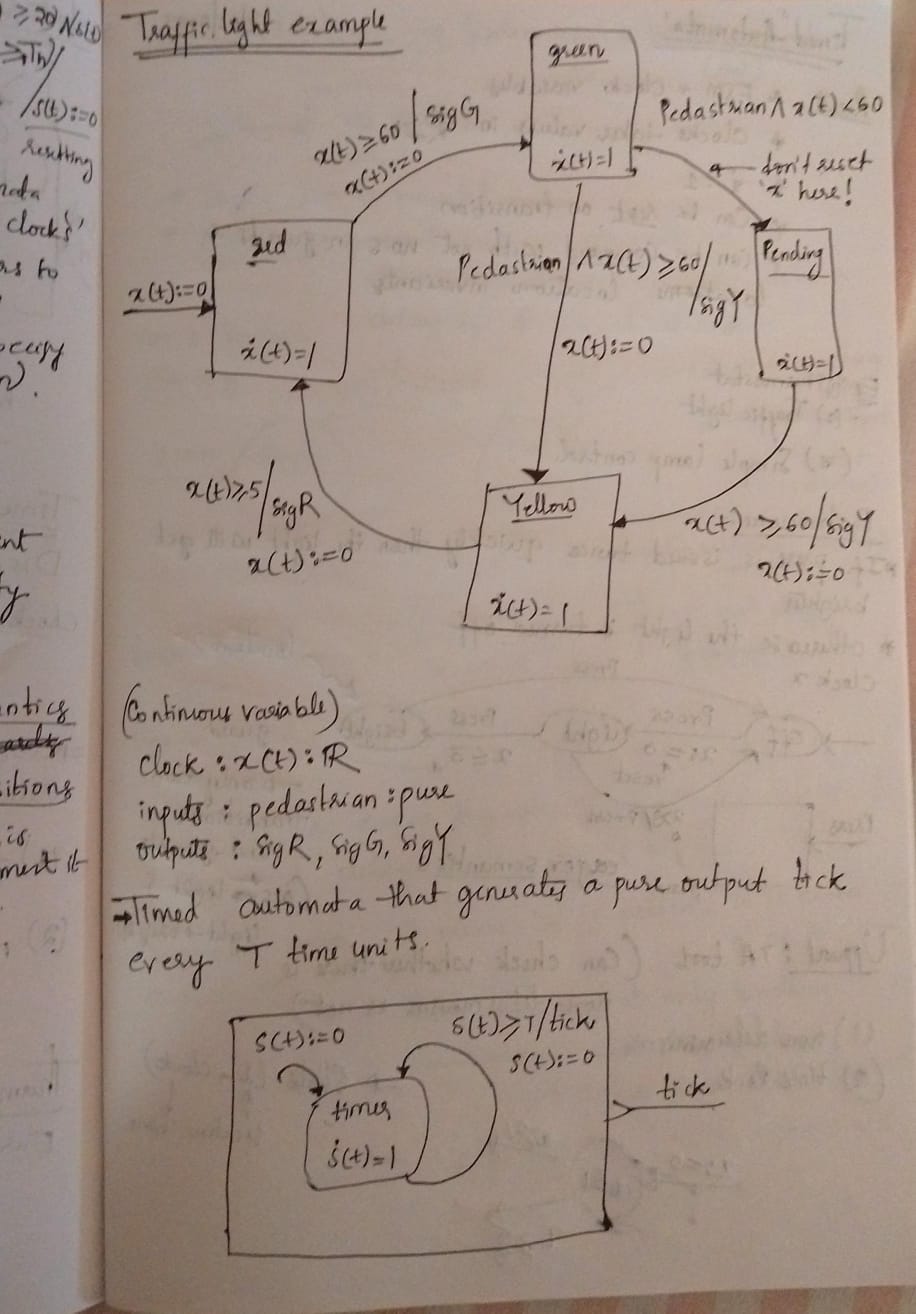 ≥20/
s(t):=0
resetting
clocks'
as to
occupy
ent
ty
antics
itions
is
ment it
Traffic light example
green
ẋ(t)=1
x(t)≥60/sigG
x(t):=0
Pedastrian ∧ x(t)<60
don't reset
'x' here!
red
x(t):=0
ẋ(t)=1
Pedastrian ∧ x(t)≥60/
sigY
x(t):=0
Pending
ẋ(t)=1
x(t)≥5/sigR
x(t):=0
Yellow
ẋ(t)=1
x(t) ≥60/sigY
x(t):=0
(Continuous variable)
clock : x(t) : ℝ
inputs : pedastrian : pure
outputs : sigR, sigG, sigY
→Timed automata that generates a pure output tick
every T time units.
s(t):=0
s(t)≥T/tick
s(t):=0
timer
ṡ(t)=1
tick